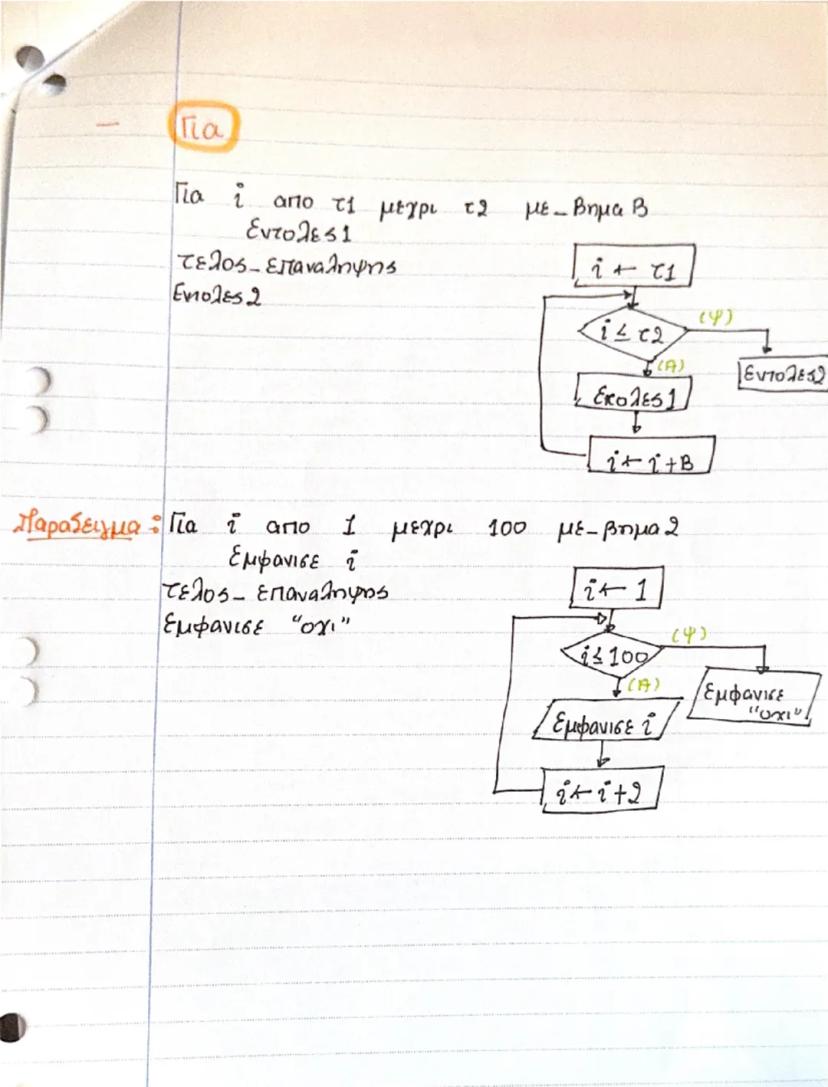 Για
Για i απο τ1 μεχρι τ2 με_Βημα Β
Εντολες1
τελος_επαναληψης
Εντολες2
i ← τ1
i ≤ τ2
(Ψ)
(Α)
Εντολες2
Εντολες1
i ← i + Β
Παραδειγμα: Για i απο 1 μεχρι 100 με_βημα 2
Εμφανισε i
τελος_επαναληψης
Εμφανισε "οχι"
i ← 1
i ≤ 100
(Ψ)
(Α)
Εμφανισε
"οχι"
Εμφανισε i
i ← i + 2